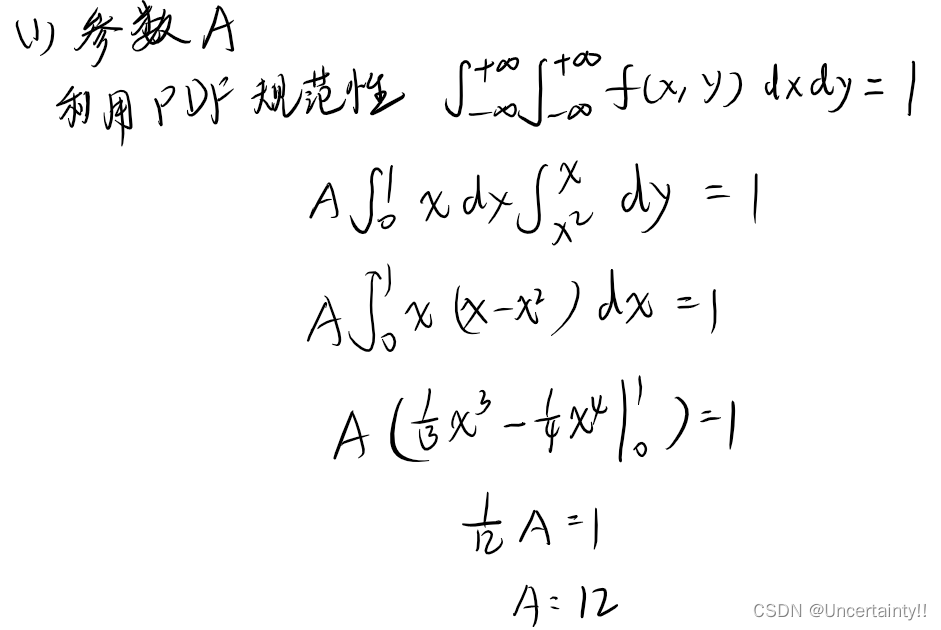 (1) 参数 A
利用 PDF 规范性 ∫_{-∞}^{+∞}∫_{-∞}^{+∞} f(x, y) dxdy = 1
A∫_0^1 x dx∫_{x^2}^{x} dy = 1
A∫_0^1 x (x-x^2) dx = 1
A (1/3 x^3 - 1/4 x^4 |_0^1 ) = 1
1/12 A = 1
A = 12
CSDN @Uncertainty!!